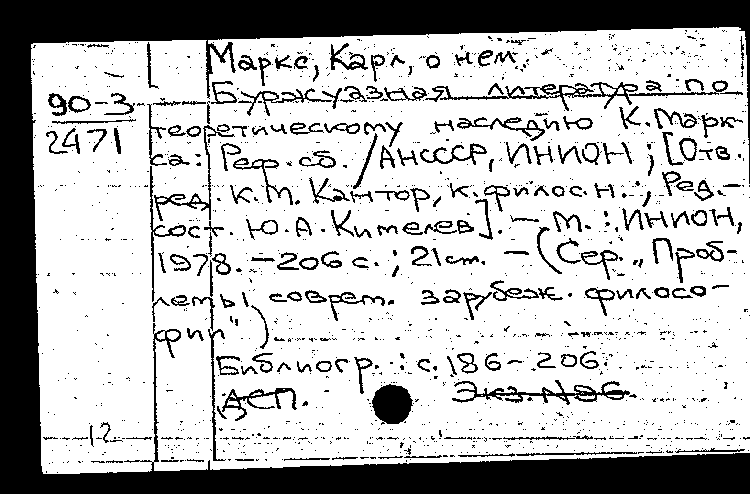 Маркс, Карл, о нем.
90-3
2471
Буржуазная литература по
теоретическому наследию К. Марк-
са: Реф. сб. / АНСССР, ИНИОН; [Отв.
ред. К.М. Кантор, к.филос.н.; Ред.-
сост. Ю.А. Кимелев]. – М.: ИНИОН,
1978. – 206 с.; 21 см. – (Сер. „Проб-
лемы соврем. зарубеж. филосо-
фии")
Библиогр.: с. 186-206.
ДСП. Экз. № 96.
12